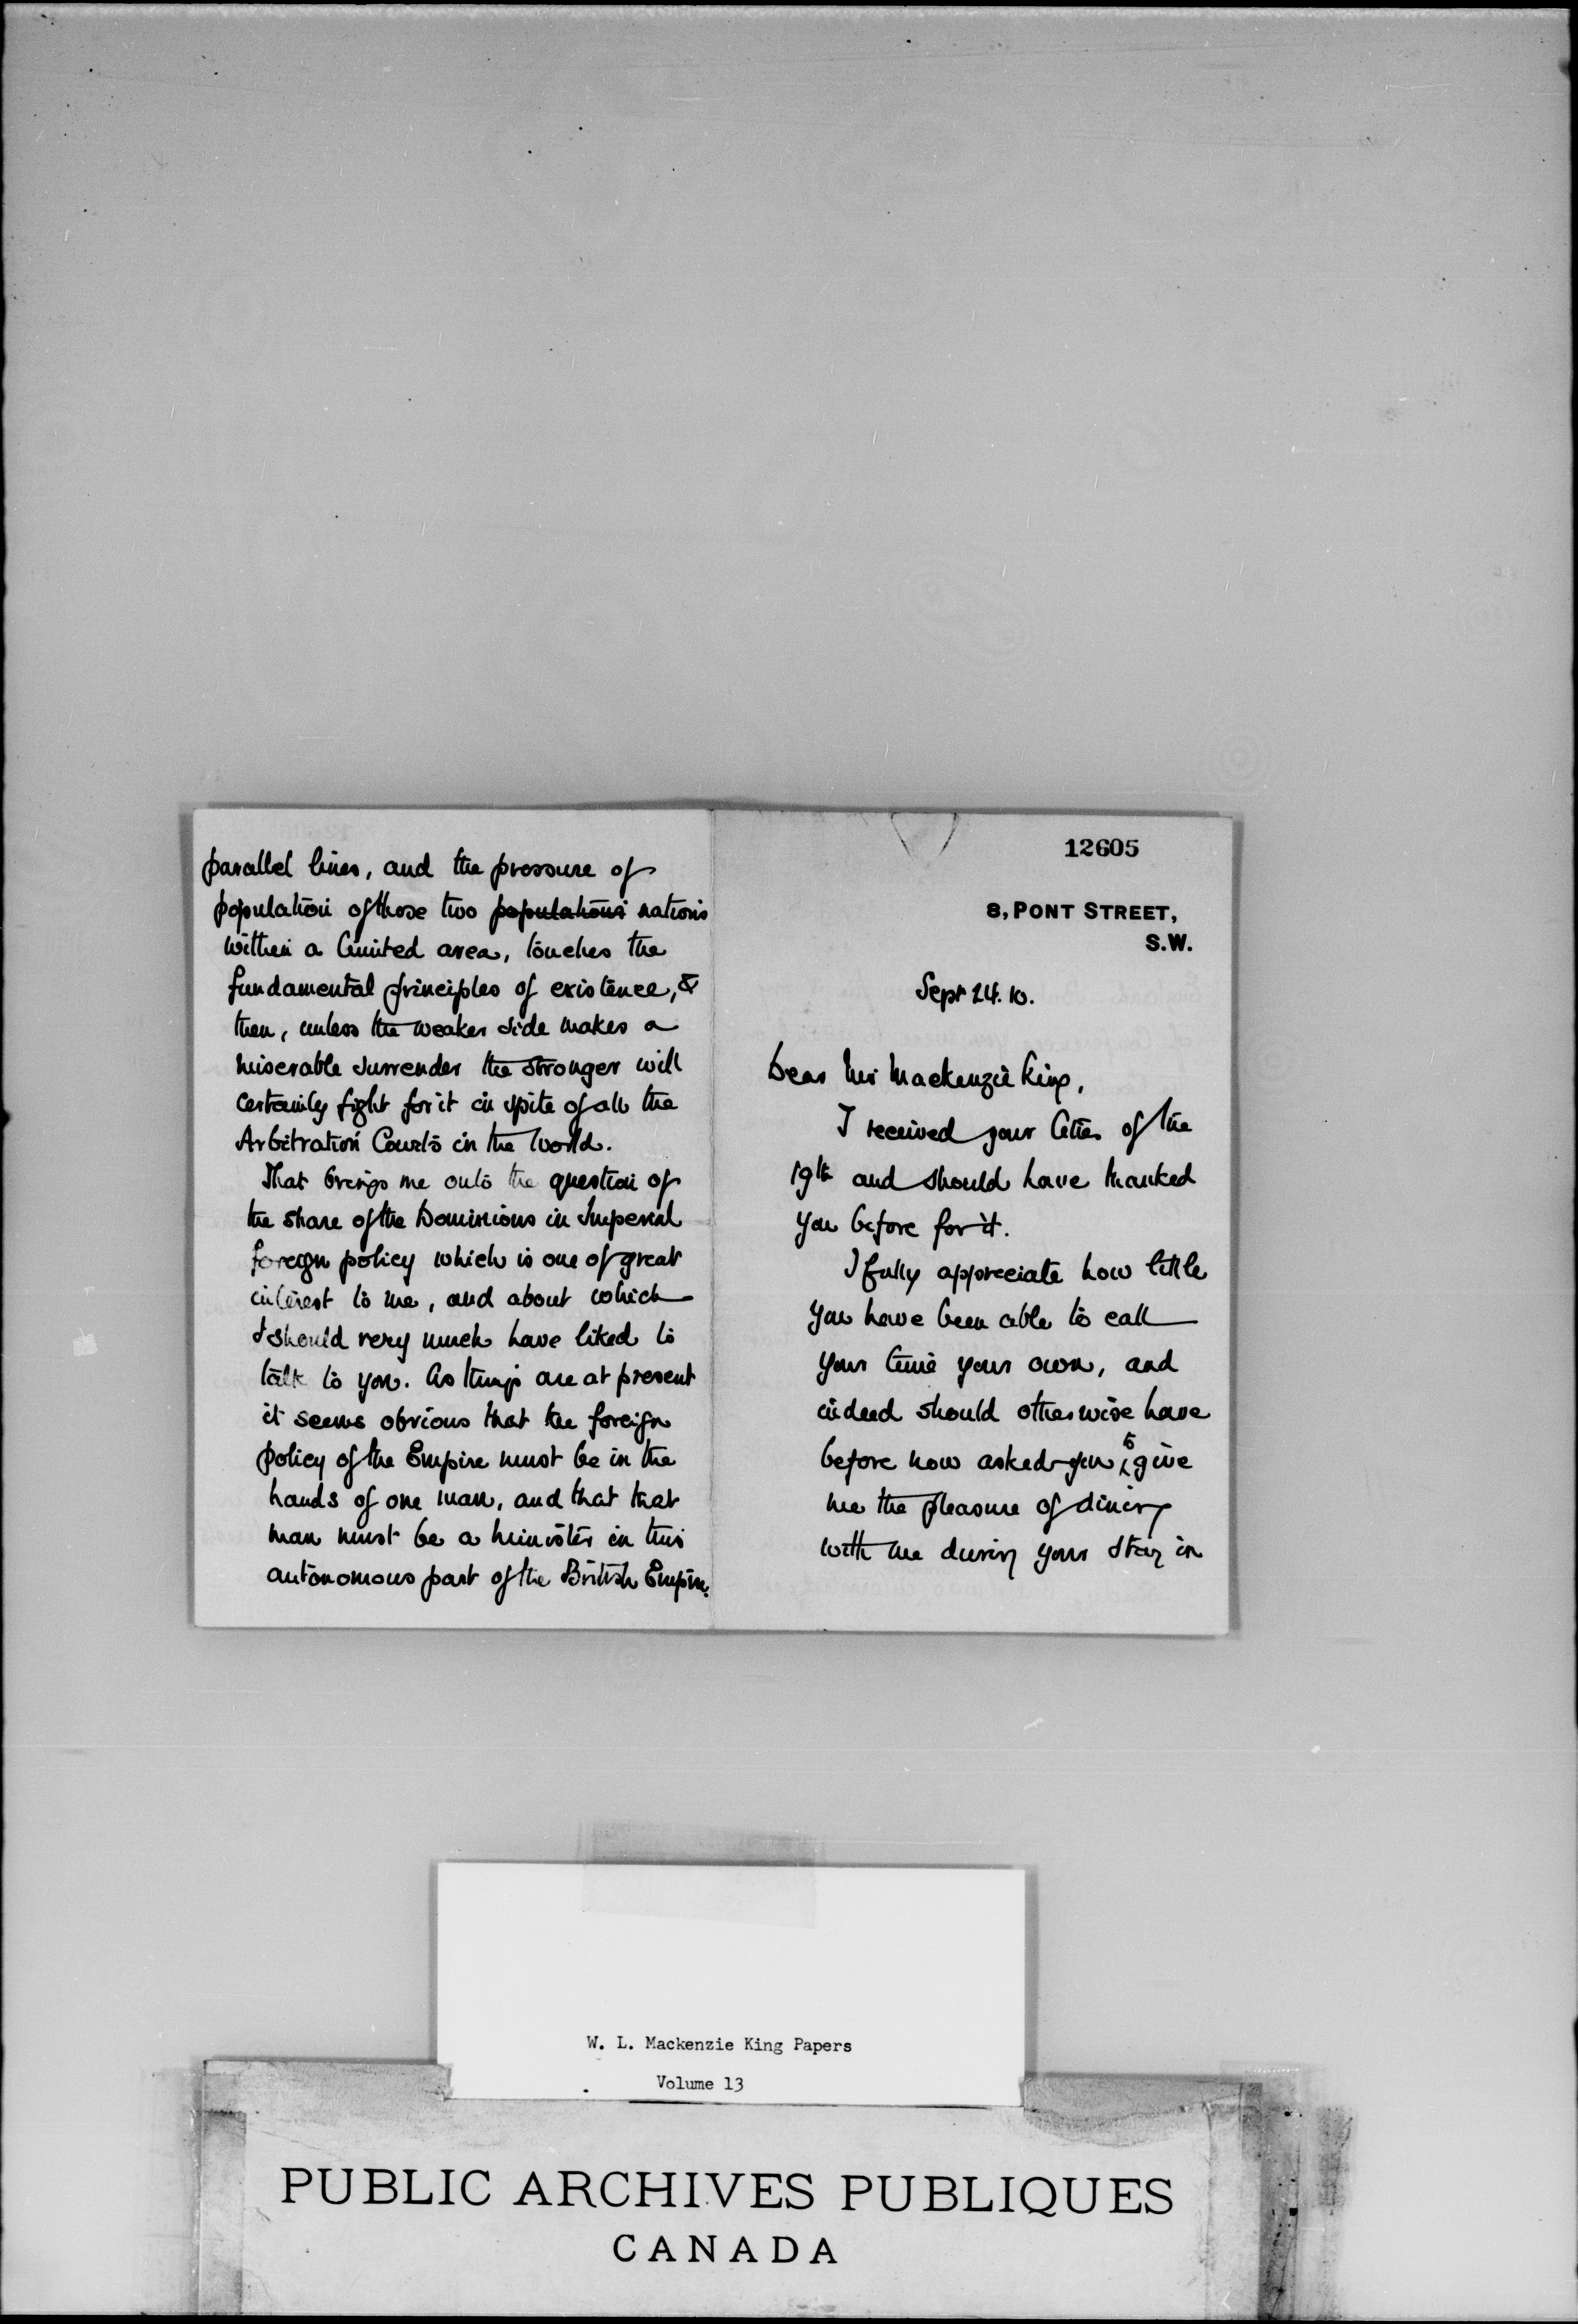 parallel lines, and the pressure of
population of those two populations nations
within a limited area, touches the
fundamental principles of existence, &
then, unless the weaker side makes a
miserable surrender the stronger will
certainly fight for it in spite of all the
Arbitration Courts in the World.
That brings me onto the question of
the share of the Dominions in Imperial
foreign policy which is one of great
interest to me, and about which
I should very much have liked to
talk to you. As things are at present
it seems obvious that the foreign
policy of the Empire must be in the
hands of one man, and that that
man must be a minister in this
autonomous part of the British Empire.
12605
8, PONT STREET,
S.W.
Sept 24. 10.
Dear Mr Mackenzie King,
I received your letter of the
19th and should have thanked
you before for it.
I fully appreciate how little
you have been able to call
your time your own, and
indeed should otherwise have
before now asked you to give
me the pleasure of dining
with me during your stay in
W. L. Mackenzie King Papers
Volume 13
PUBLIC ARCHIVES PUBLIQUES
CANADA